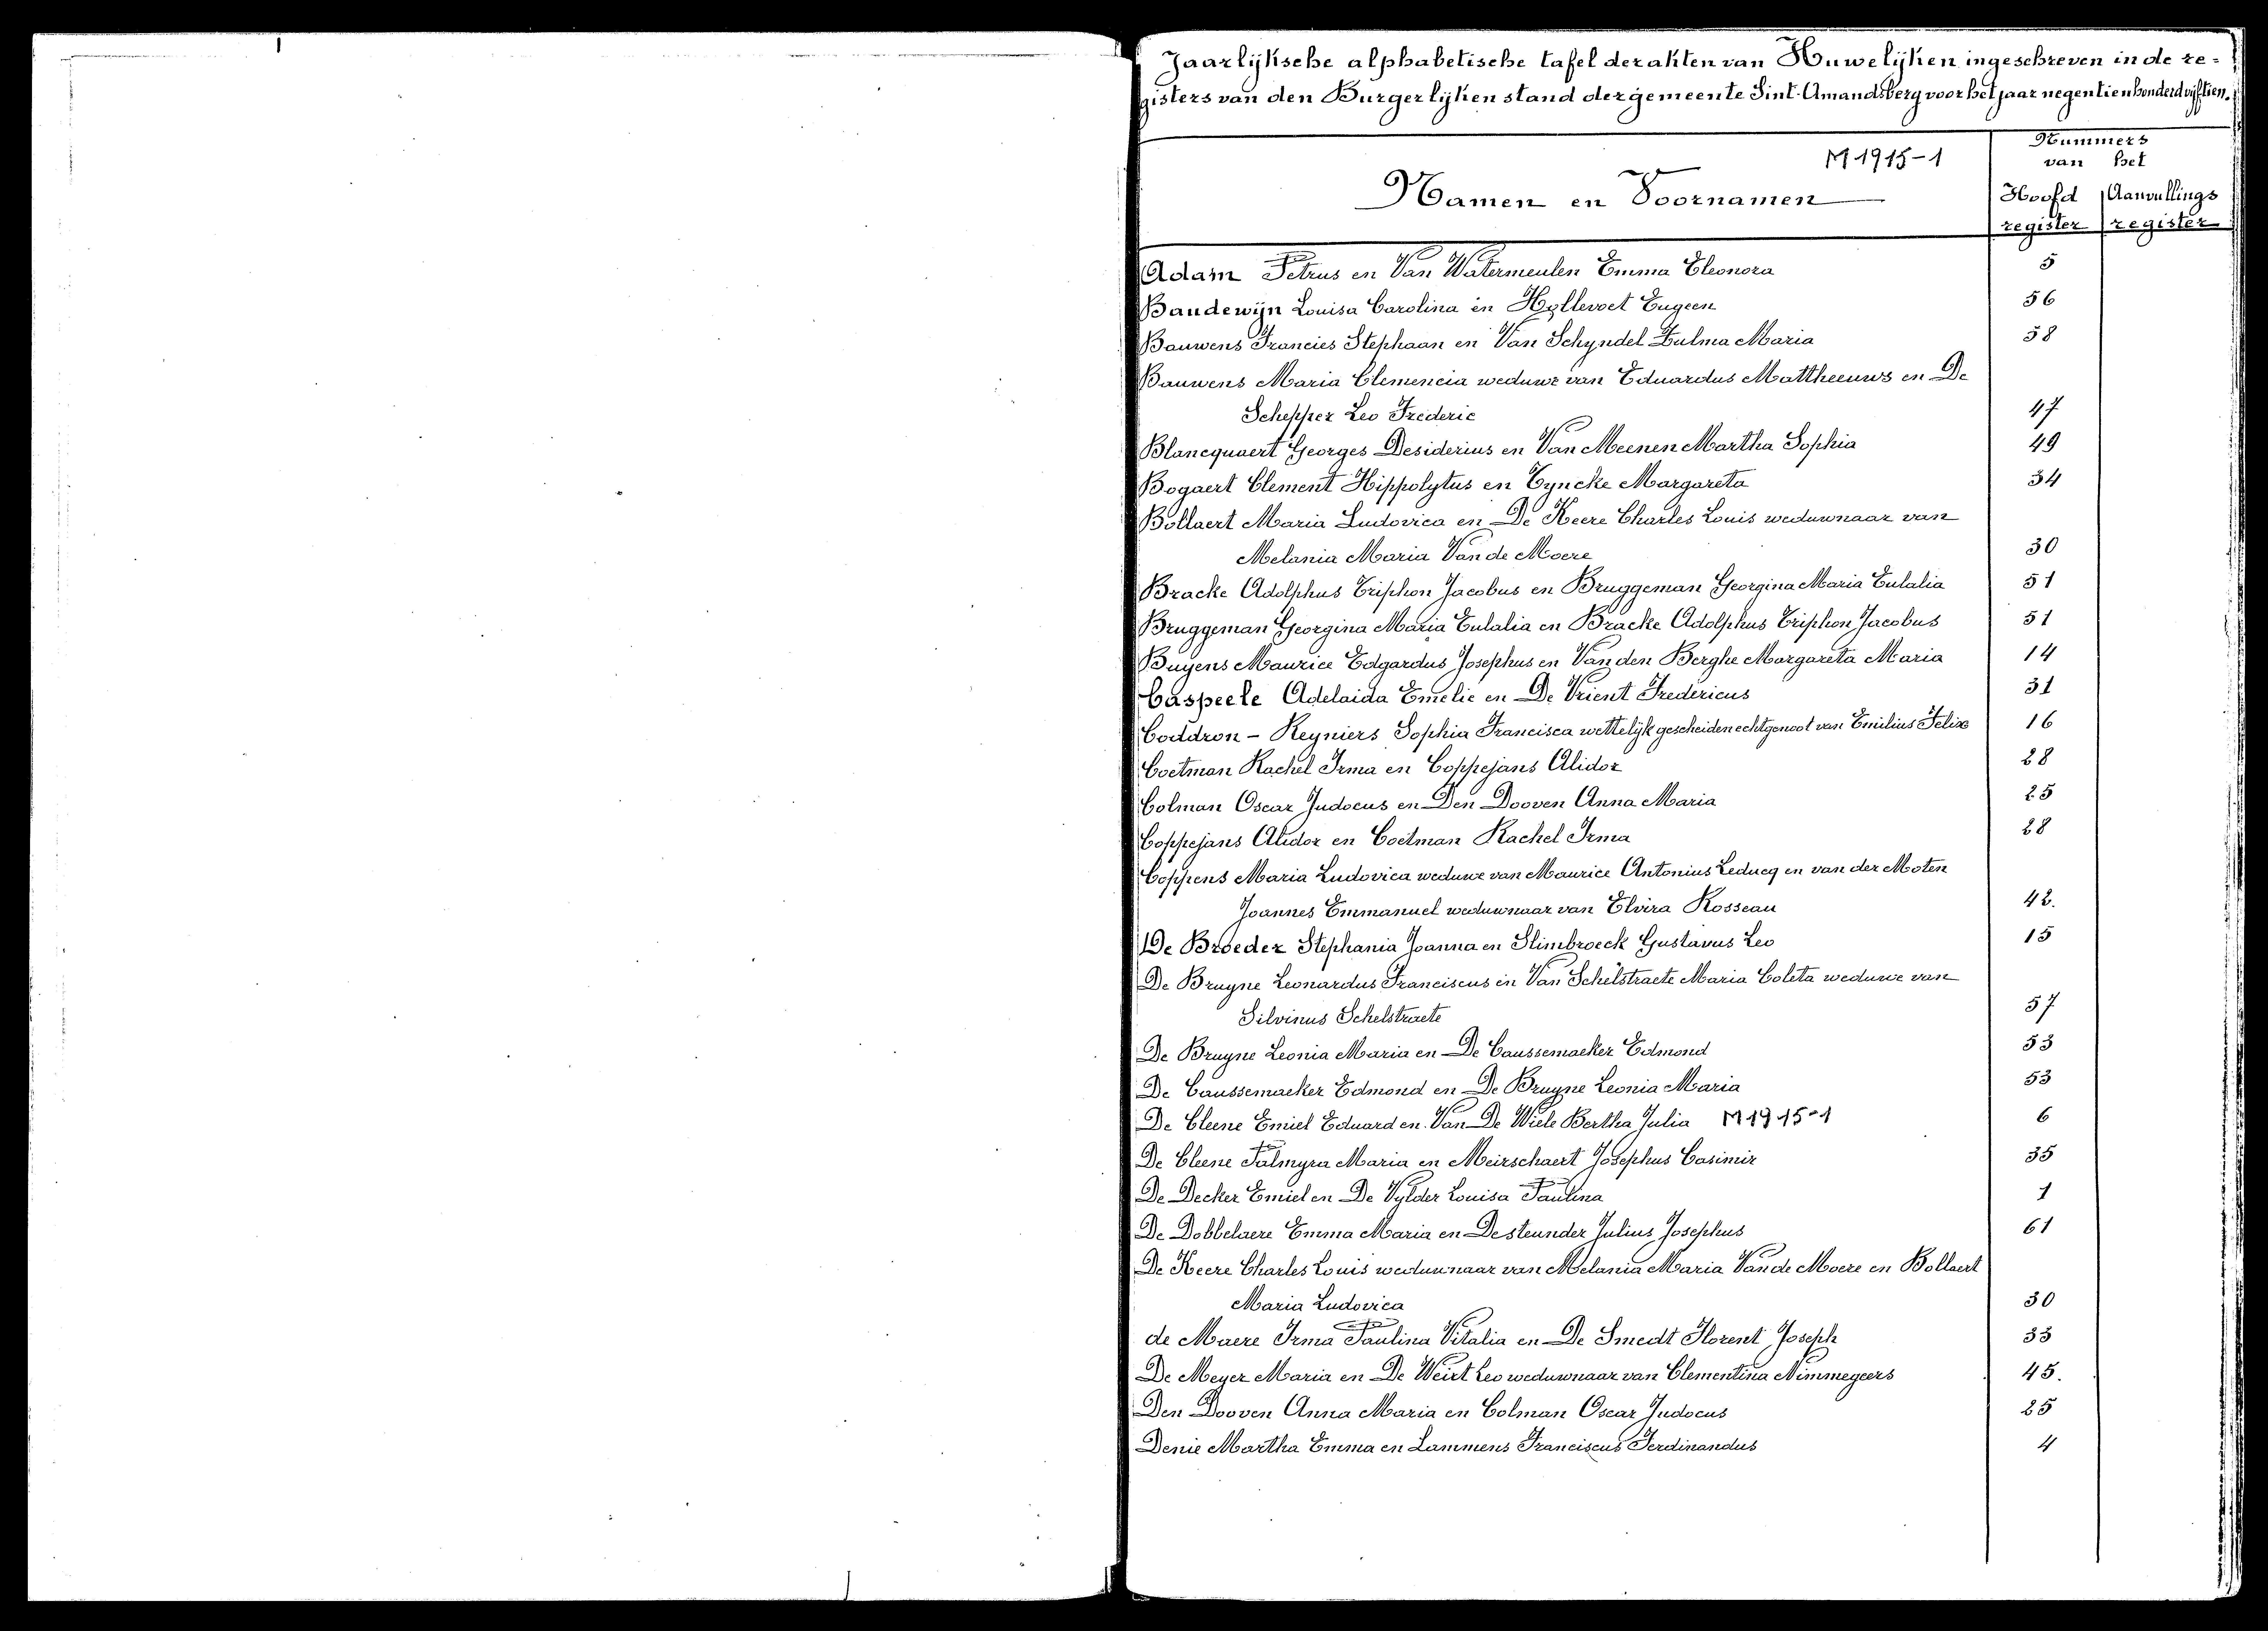 Jaarlijksche alphabetische tafel der akten van Huwelijken ingeschreven in de re-
gisters van den Burgerlijken stand der gemeente Sint-Amandsberg voor het jaar negentienhonderd vijftien.
Nummers
van het
M 1915-1
Namen en Voornamen
Hoofd Aanvullings
register register
Adam Petrus en Van Watermeulen Emma Eleonora 5
Baudewijn Louisa Carolina en Hollevoet Eugeen 56
Bauwens Francies Stephaan en Van Schyndel Zulma Maria 58
Bauwens Maria Clemencia weduwe van Eduardus Mattheeuws en De
Schepper Leo Frederic 47
Blancquaert Georges Desiderius en Van Meenen Martha Sophia 49
Bogaert Clement Hippolytus en Tyncke Margareta 34
Bollaert Maria Ludovica en De Keere Charles Louis weduwnaar van
Melania Maria Van de Moere 30
Bracke Adolphus Triphon Jacobus en Bruggeman Georgina Maria Eulalia 51
Bruggeman Georgina Maria Eulalia en Bracke Adolphus Triphon Jacobus 51
Buyens Maurice Edgardus Josephus en Van den Berghe Margareta Maria 14
Caspeele Adelaida Emelie en De Vrient Fredericus 31
Coddron - Reyniers Sophia Francisca wettelijk gescheiden echtgenoot van Emilius Felix 16
Coetman Rachel Irma en Coppejans Alidor 28
Colman Oscar Judocus en Den Dooven Anna Maria 25
Coppejans Alidor en Coetman Rachel Irma 28
Coppens Maria Ludovica weduwe van Maurice Antonius Leducq en van der Moten
Joannes Emmanuel weduwnaar van Elvira Rosseau 42.
De Broeder Stephania Joanna en Slimbroeck Gustavus Leo 15
De Bruyne Leonardus Franciscus en Van Schelstraete Maria Coleta weduwe van
Silvinus Schelstraete 57
De Bruyne Leonia Maria en De Caussemaeker Edmond 53
De Caussemaeker Edmond en De Bruyne Leonia Maria 53
De Cleene Emiel Eduard en Van De Wiele Bertha Julia M 1915-1 6
De Cleene Palmyra Maria en Meirschaert Josephus Casimir 35
De Decker Emiel en De Vylder Louisa Paulina 1
De Dobbelaere Emma Maria en Desteunder Julius Josephus 61
De Keere Charles Louis weduwnaar van Melania Maria Van de Moere en Bollaert
Maria Ludovica 30
de Maere Irma Paulina Vitalia en De Smedt Florent Joseph 33
De Meyer Maria en De Weirt Leo weduwnaar van Clementina Nimmegeers 45.
Den Dooven Anna Maria en Colman Oscar Judocus 25
Denie Martha Emma en Lammens Franciscus Ferdinandus 4